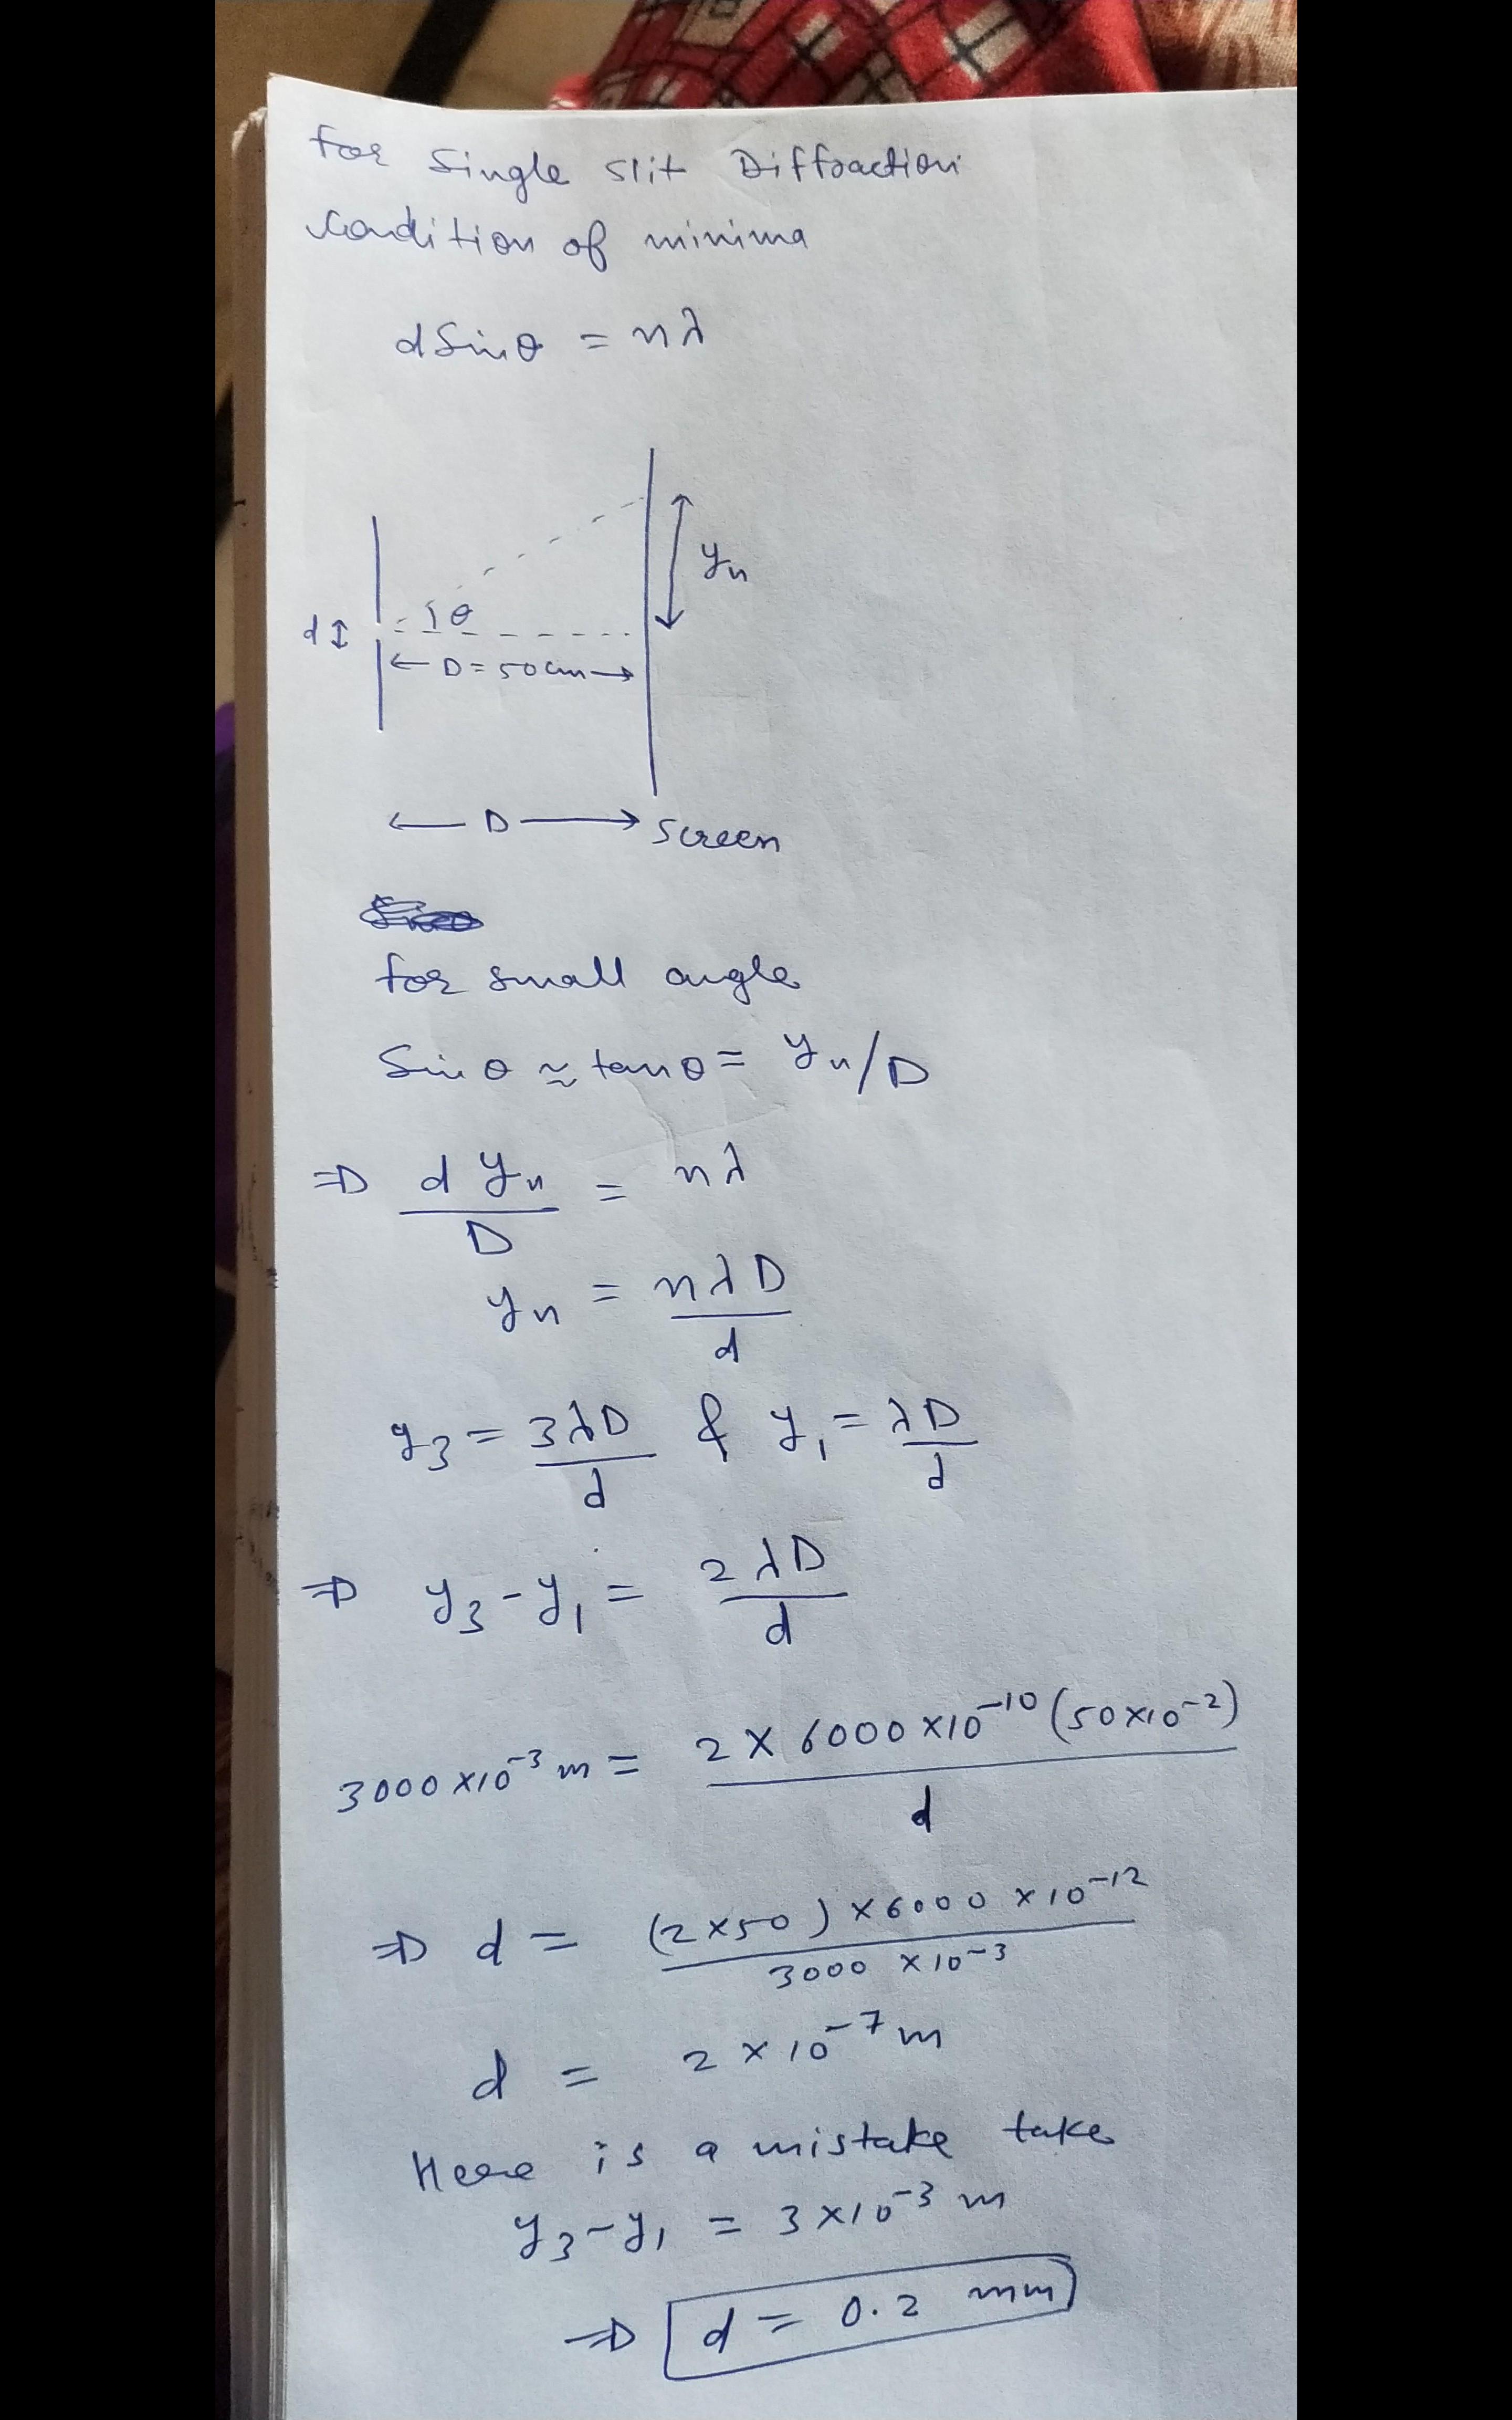 For Single slit Diffraction
Condition of minima
d Sin θ = nλ
yn
θ
d
D = 50 cm
D
Screen
for small angle
Sin θ ≈ tan θ = yn/D
⇒ d yn / D = nλ
yn = nλD / d
y3 = 3λD / d & y1 = λD / d
⇒ y3 - y1 = 2λD / d
3000 × 10^-3 m = 2 × 6000 × 10^-10 (50 × 10^-2) / d
⇒ d = (2 × 50) × 6000 × 10^-12 / 3000 × 10^-3
d = 2 × 10^-7 m
Here is a mistake take
y3 - y1 = 3 × 10^-3 m
⇒ d = 0.2 mm